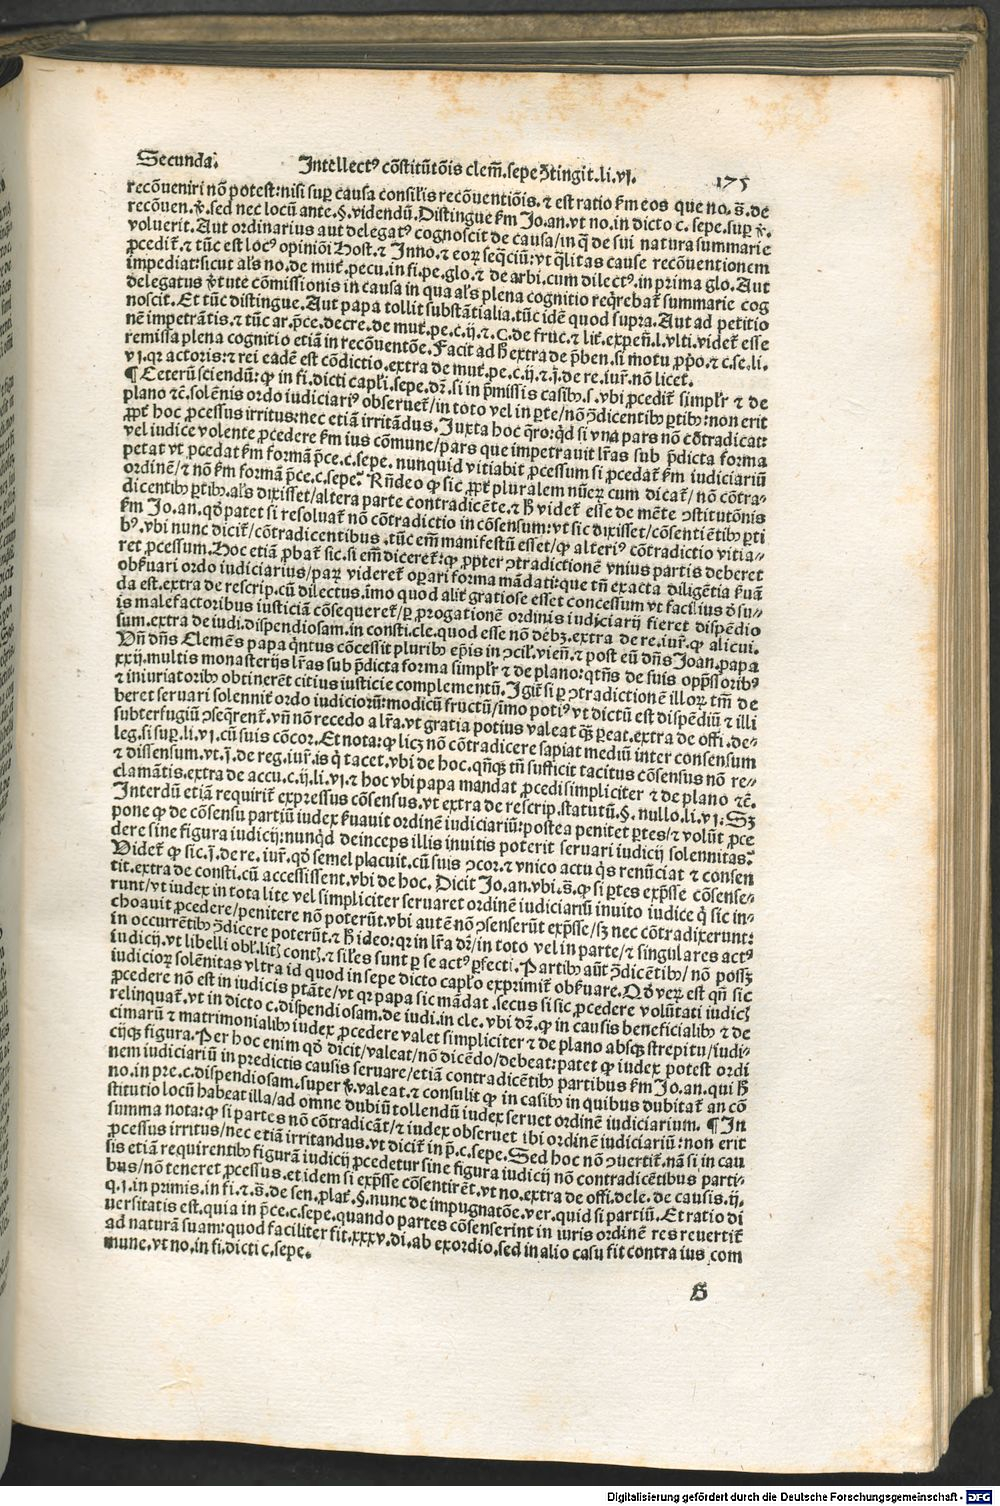 Secunda. Intellectꝰ cõstitũtõis clem̃.sepe ꝯ̃tingit.li.vj. 175
recõueniri nõ potest:nisi suꝑ causa consil̃is recõuentiõis.⁊ est ratio ẜm eos que no.s̃.de
recõuen.ꝟ.sed nec locũ ante.§.videndũ.Distingue ẜm Jo.an.vt no.in dicto c.sepe.suꝑ ꝟ.
voluerit.Aut ordinarius aut delegatꝰ cognoscit de causa/in q̃ de sui natura summarie
ꝓcedit̃.⁊ tũc est locꝰ opinioĩ Host.⁊ Inno.⁊ eoꝝ seq̃ciũ:vt q̃litas cause recõuentionem
impediat:sicut al̃s no.de mut̃.pecu.in fi.pe.glo.⁊ de arbi.cum dilectꝰ.in prima glo.Aut
delegatus ꝟtute cõmissionis in causa in qua al̃s plena cognitio req̃rebat̃ summarie cog
noscit.Et tũc distingue.Aut papa tollit substãtialia.tũc idẽ quod supra.Aut ad petitio
nẽ impetrãtis.⁊ tũc ar.p̃ce.decre.de mut̃.pe.c.ij.⁊.C.de fruc.⁊ lit̃.expeñ.l.vlti.videt̃ esse
remissa plena cognitio etiã in recõuentõe.Facit ad h̃ extra de p̃ben.si motu ꝓp̃o.⁊ c.se.li.
vj.qꝛ actoris:⁊ rei eadẽ est cõdictio.extra de mut̃.pe.c.ij.⁊.j̃.de re.iur̃.nõ licet.
¶ Ceterũ sciendũ:ꝙ in fi.dicti cap̃li.sepe.dꝛ̃.si in p̃missis casibꝰ.s.vbi ꝓcedit̃ simpl̃r ⁊ de
plano ⁊c̃.solẽnis ordo iudiciariꝰ obseruet̃/in toto vel in ꝑte/nõ ꝯ̃dicentibꝰ ꝑtibꝰ:non erit
ꝓpt̃ hoc ꝓcessus irritus:nec etiã irritãdus.Juxta hoc q̃ro:q̃d si vna pars nõ cõtradicat:
vel iudice volente ꝓcedere ẜm ius cõmune/pars que impetrauit lr̃as sub p̃dicta forma
petat vt ꝓcedat ẜm formã p̃ce.c.sepe.nunquid vitiabit ꝓcessum si ꝓcedat̃ ẜm iudiciariũ
ordinẽ/⁊ nõ ẜm formã p̃ce.c.sepe.Rñdeo ꝙ sic ꝓpt̃ pluralem nũeꝝ cum dicat̃/nõ cõtra⸗
dicentibꝰ ꝑtibꝰ.al̃s dixisset/altera parte contradicẽte.⁊ h̃ videt̃ esse de mẽte ꝯstitutõnis
ẜm Jo.an.qđ patet si resoluat̃ nõ cõtradictio in cõsensum:vt sic dixisset/cõsentiẽtibꝰ ꝑti
bꝰ.vbi nunc dicit̃/cõtradicentibus.tũc em̃ manifestũ esset/ꝙ alteriꝰ cõtradictio vitia⸗
ret ꝓcessum.Hoc etiã ꝓbat̃ sic.si em̃ diceret̃:ꝙ ꝓpter ꝯtradictionẽ vnius partis deberet
obẜuari ordo iudiciarius/paꝝ videret̃ oꝑari forma mãdati:que tñ exacta diligẽtia ẜuã
da est.extra de rescrip.cũ dilectus.ĩmo quod alit̃ gratiose esset concessum vt facilius đ su⸗
is malefactoribus iusticiã cõsequeret̃/ꝑ ꝓrogationẽ ordinis iudiciarij fieret dispẽdio
sum.extra de iudi.dispendiosam.in consti.cle.quod esse nõ debꝫ.extra de re.iur̃.ꝙ alicui.
Vñ dñs Clemẽs papa q̃ntus cõcessit pluribꝰ ep̃is in ꝯcil̃.vieñ.⁊ post eũ dñs Joan.papa
xxij.multis monasterijs lr̃as sub p̃dicta forma simpl̃r ⁊ de plano:qtñs de suis opp̃ssoribꝰ
⁊ iniuriatoribꝰ obtinerẽt citius iusticie complementũ.Igit̃ si ꝑ ꝯtradictionẽ illoꝝ tm̃ de
beret seruari solennit̃ ordo iudicioꝝ:modicũ fructũ/ĩmo potiꝰ vt dictũ est dispẽdiũ ⁊ illi
subterfugiũ ꝯseq̃rent̃.vñ nõ recedo a lr̃a.vt gratia potius valeat q̃ꝫ ꝑeat.extra de offi.de⸗
leg.si suꝑ.li.vj.cũ suis cõcoꝛ.Et nota:ꝙ licꝫ nõ cõtradicere sapiat mediũ inter consensum
⁊ dissensum.vt.j̃.de reg.iur̃.is q̃ tacet.vbi de hoc.qñqꝫ tñ sufficit tacitus cõsensus nõ re⸗
clamãtis.extra de accu.c.ij.li.vj.⁊ hoc vbi papa mandat ꝓcedi simpliciter ⁊ de plano ⁊c̃.
Interdũ etiã requirit̃ expressus cõsensus.vt extra de rescrip.statutũ.§.nullo.li.vj.Sꝫ
pone ꝙ de cõsensu partiũ iudex ẜuauit ordinẽ iudiciariũ:postea penitet ꝑtes/⁊ volũt ꝓce
dere sine figura iudicij:nunq̃d deinceps illis inuitis poterit seruari iudicij solennitas.
Videt̃ ꝙ sic.j̃.de re.iur̃.qđ semel placuit.cũ suis ꝯcoꝛ.⁊ vnico actu q̃s renũciat ⁊ consen
tit.extra de consti.cũ accessissent.vbi de hoc.Dicit Jo.an.vbi.s̃.ꝙ si ꝑtes exp̃sse cõsense⸗
runt/vt iudex in tota lite vel simpliciter seruaret ordinẽ iudiciariũ inuito iudice q̃ sic in⸗
choauit ꝓcedere/penitere nõ poterũt.vbi aut̃ nõ ꝯsenserũt exp̃sse/sꝫ nec cõtradixerunt:
in occurrẽtibꝰ ꝯ̃dicere poterũt.⁊ h̃ ideo:qꝛ in lr̃a dꝛ̃/in toto vel in parte/⁊ singulares actꝰ
iudicij.vt libelli obl̃.litꝫ contꝫ.⁊ sil̃es sunt ꝑ se actꝰ ꝑfecti.Partibꝰ aũt ꝯ̃dicẽtibꝰ/nõ possꝫ
iudicioꝝ solẽnitas vltra id quod in sepe dicto cap̃lo exprimit̃ obẜuare.Qđ veꝝ est qñ sic
ꝓcedere nõ est in iudicis ptãte/vt qꝛ papa sic mãdat.secus si sic ꝓcedere volũtati iudicꝫ
relinquat̃.vt in dicto c.dispendiosam.de iudi.in cle.vbi dꝛ̃.ꝙ in causis beneficialibꝰ ⁊ de
cimarũ ⁊ matrimonialibꝰ iudex ꝓcedere valet simpliciter ⁊ de plano absqꝫ strepitu/iudi⸗
cijqꝫ figura.Per hoc enim qđ dicit/valeat/nõ dicẽdo/debeat:patet ꝙ iudex potest ordi
nem iudiciariũ in predictis causis seruare/etiã contradicẽtibꝰ partibus ẜm Jo.an.qui h̃
no.in pre.c.dispendiosam.super ꝟ.valeat.⁊ consulit ꝙ in casibꝰ in quibus dubitat̃ an cõ
stitutio locũ habeat illa/ad omne dubiũ tollendũ iudex seruet ordinẽ iudiciarium. ¶ In
summa nota:ꝙ si partes nõ cõtradicãt/⁊ iudex obseruet ibi ordinẽ iudiciariũ:non erit
ꝓcessus irritus/nec etiã irritandus.vt dicit̃ in p̃.c.sepe.Sed hoc nõ ꝯuertit̃.nã si in cau
sis etiã requirentibꝰ figurã iudicij ꝓcedetur sine figura iudicij nõ contradicẽtibus parti⸗
bus/nõ teneret ꝓcessus.et idem si exp̃sse cõsentirẽt.vt no.extra de offi.dele.de causis.ij.
q.j.in primis.in fi.⁊.s̃.de sen.plat̃.§.nunc de impugnatõe.ver.quid si partiũ.Et ratio di
uersitatis est.quia in p̃ce.c.sepe.quando partes cõsenserint in iuris ordinẽ res reuertit̃
ad naturã suam:quod faciliter fit.xxxv.di.ab exordio.sed in alio casu fit contra ius com
mune.vt no.in fi.dicti c.sepe.
Digitalisierung gefördert durch die Deutsche Forschungsgemeinschaft - DFG